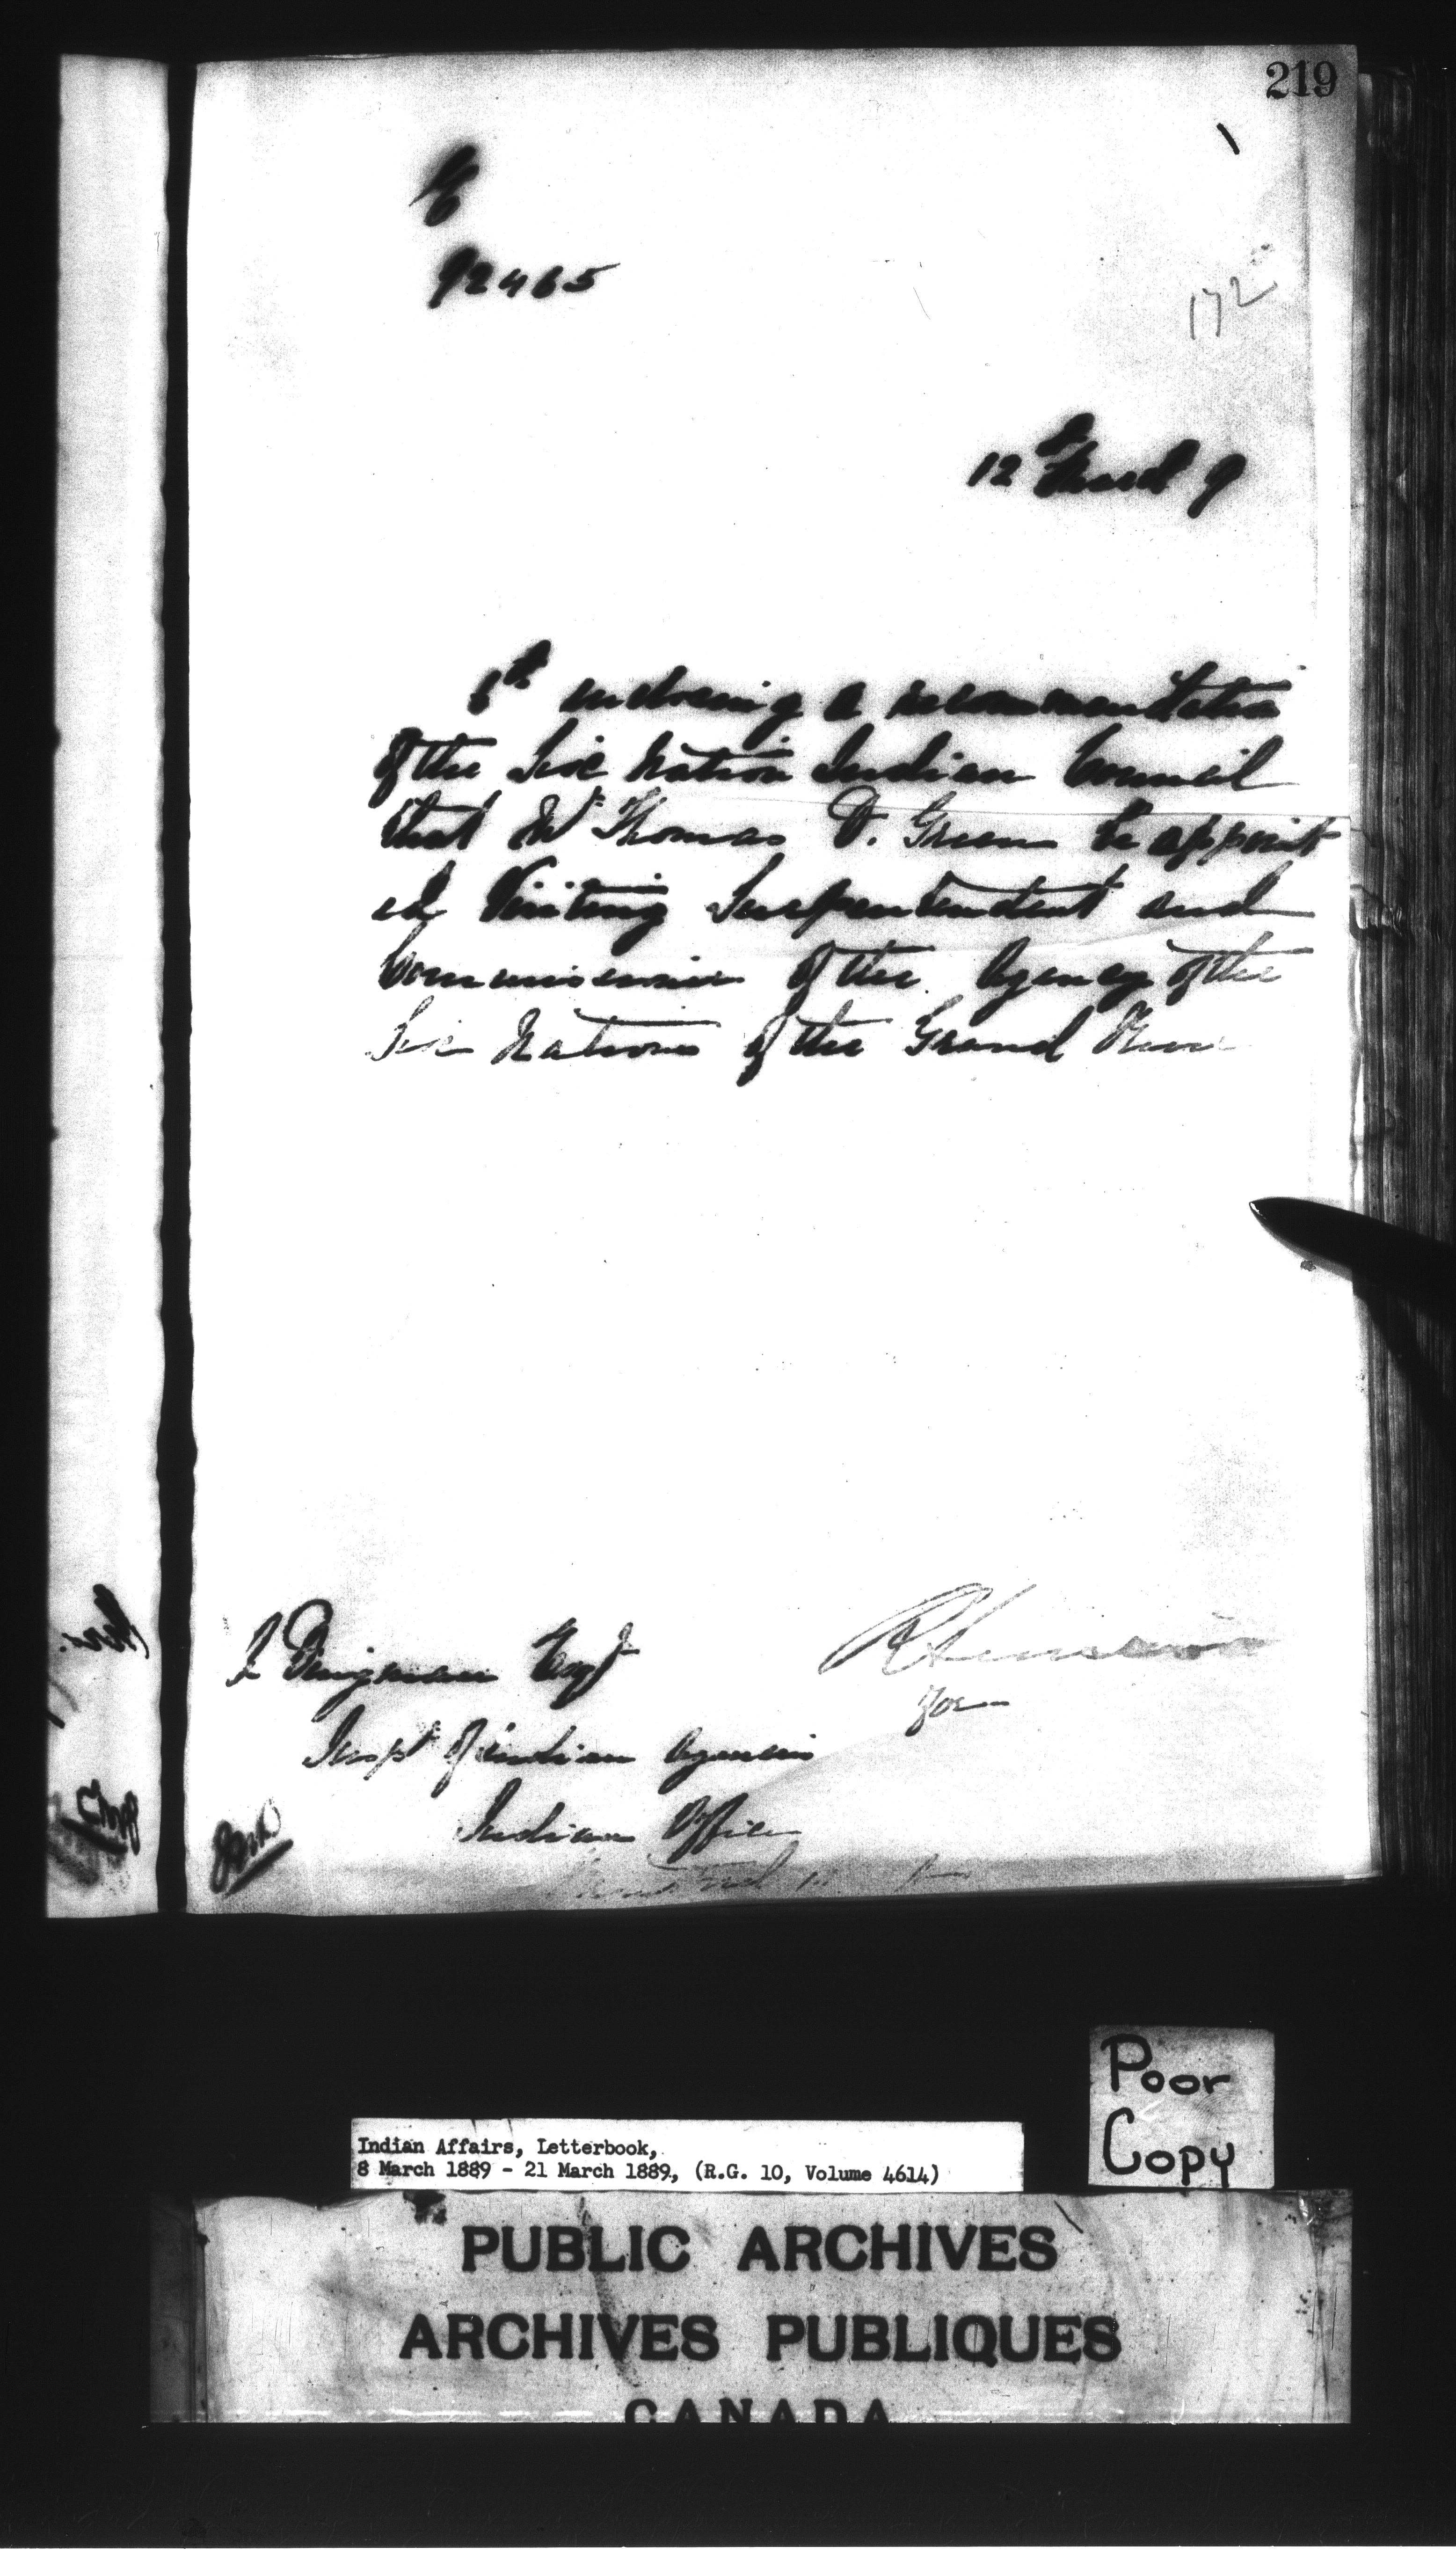 219
92465
172
12 March 9
6th enclosing a recommendation
of the Six Nation Indian Council
that Mr Thomas D. Green be appoint
ed Visiting Superintendent and
Commissioner of the Agency of the
Six Nations of the Grand River
J Dingman Esqr
for
Inspr of Indian Agencies
Indian Office
Poor
Copy
Indian Affairs, Letterbook,
8 March 1889 - 21 March 1889, (R.G. 10, Volume 4614)
PUBLIC ARCHIVES
ARCHIVES PUBLIQUES
CANADA